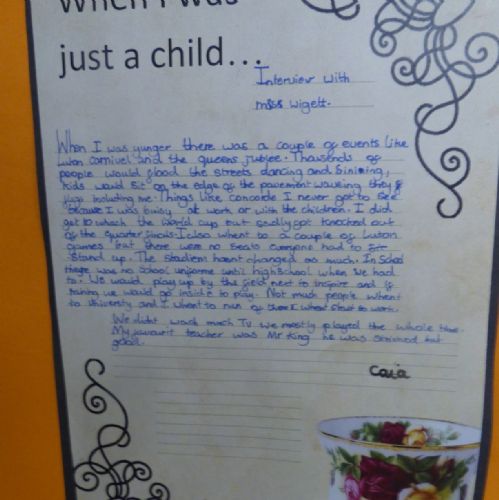 When I was
just a child...
Interview with
miss wigett.
When I was yunger there was a couple of events like
Luton carnivel and the queens jubjee. Thausends of
people would flood the streets dancing and sinining,
kids would sit on the edge of the pavement waveing they
flags including me. Things like concorde I never got to see
because I was buisy at work or with the children. I did
get to whach the world cup but sadly got knocked out
of the quarter finals. I also whent to a couple of Luton
games but there were no seats everyone had to
stand up. The stadiem hasnt changed so much. In School
there was no School uniforme until highSchool when we had
to. We would play up by the field next to inspire and if
raining we would go inside to play. Not much people whent
to university and I whent to run
We didnt wach much Tv we mostly played the whole time.
My favourit teacher was Mr King he was but
good.